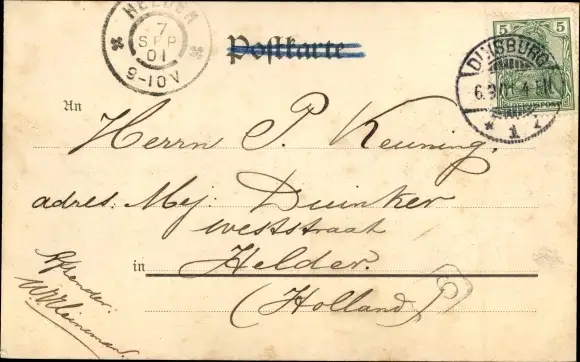 HELDER
7
SEP
01
9-10V
Postkarte
5 5
DUISBURG
6.9.01. 4-5N
* 1 i
An
Herrn P. Keuning,
adres: Mej. Duinker
weststraat
in Helder.
(Holland)
6
Afzender: